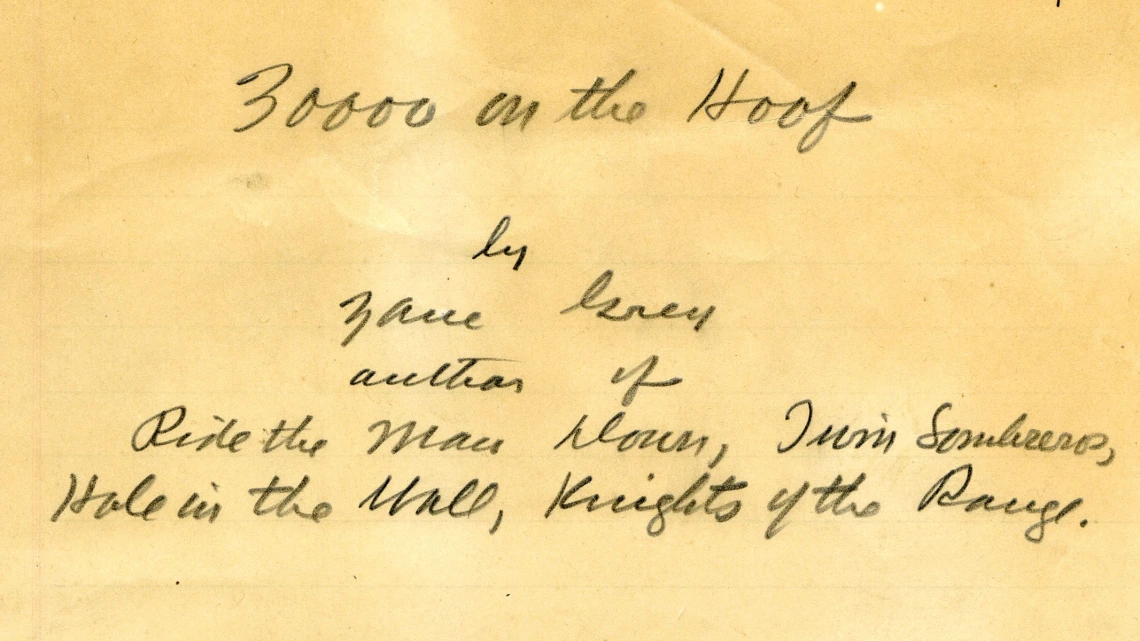 30000 on the Hoof
by
Zane Grey
author of
Ride the Man Down, Twin Sombreros,
Hole in the Wall, Knights of the Range.